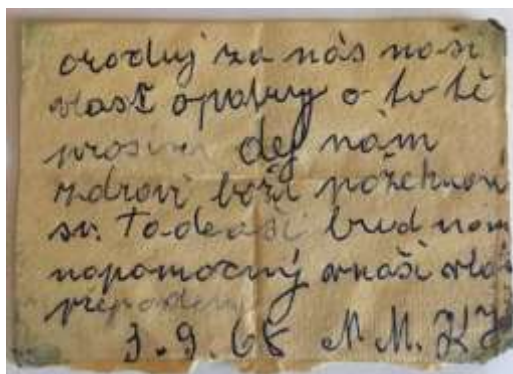 oroduj za nás naši
vlast opatruj o to tě
prosíme dej nám
zdraví boží požehnaní
sv. Tadeáši bud nam
napomocný v naší vlas
1.9.68 M.M.